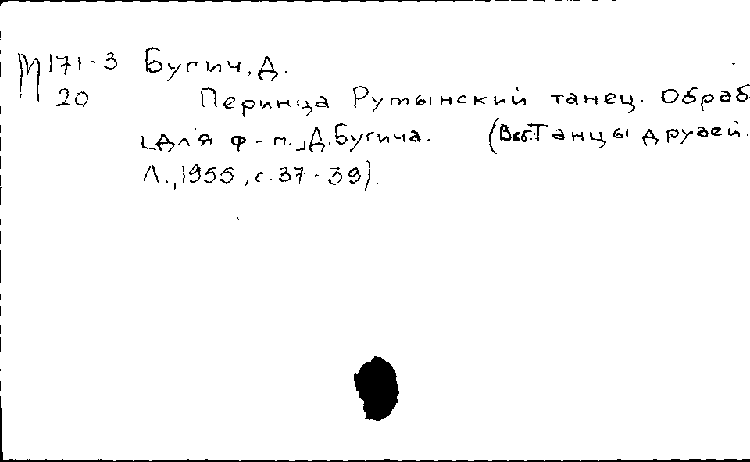 М 171-3 Бугич, Д.
20 Периница Румынский танец. Обраб
[для ф-п.] Д. Бугича. (В сб. Танцы друзей.
Л., 1955, с. 37-39)